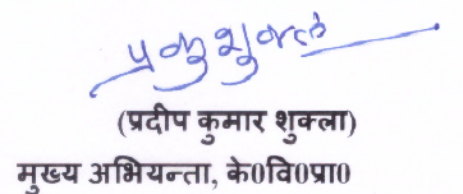 प्र कु शुक्ल
(प्रदीप कुमार शुक्ला)
मुख्य अभियन्ता, के0वि0प्रा0